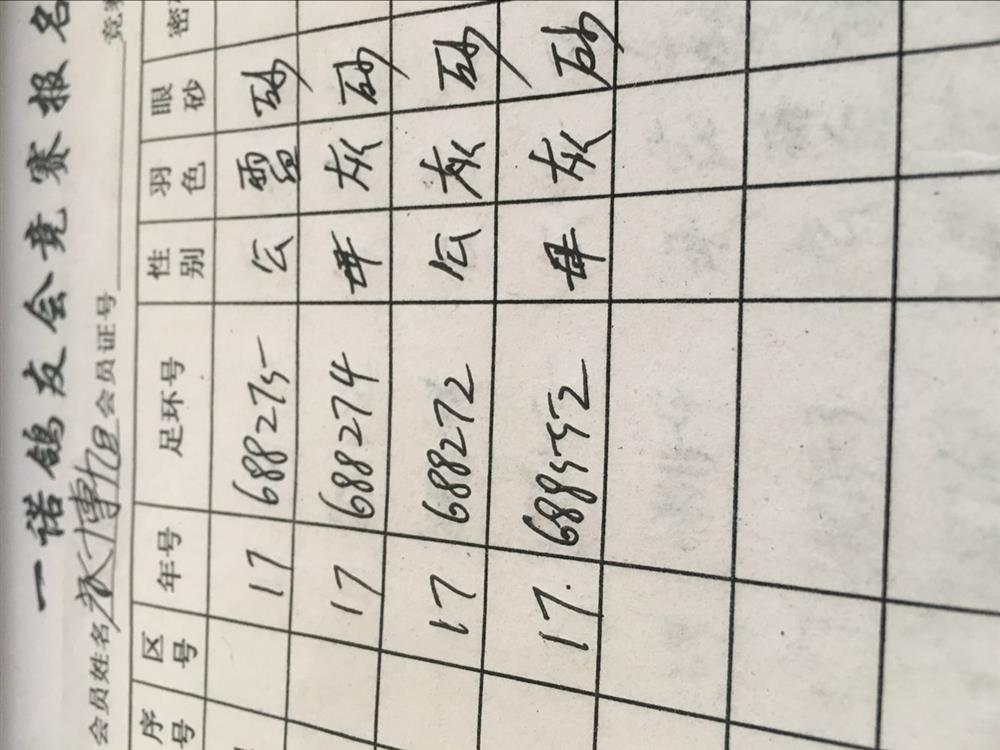 一诺鸽友会竞赛报名
会员姓名 会员证号 竞赛
序号 区号 年号 足环号 性别 羽色 眼砂 密
17 688275 公 雨点 砂
17 688274 母 灰 砂
17 688272 公 灰 砂
17. 688552 母 灰 砂